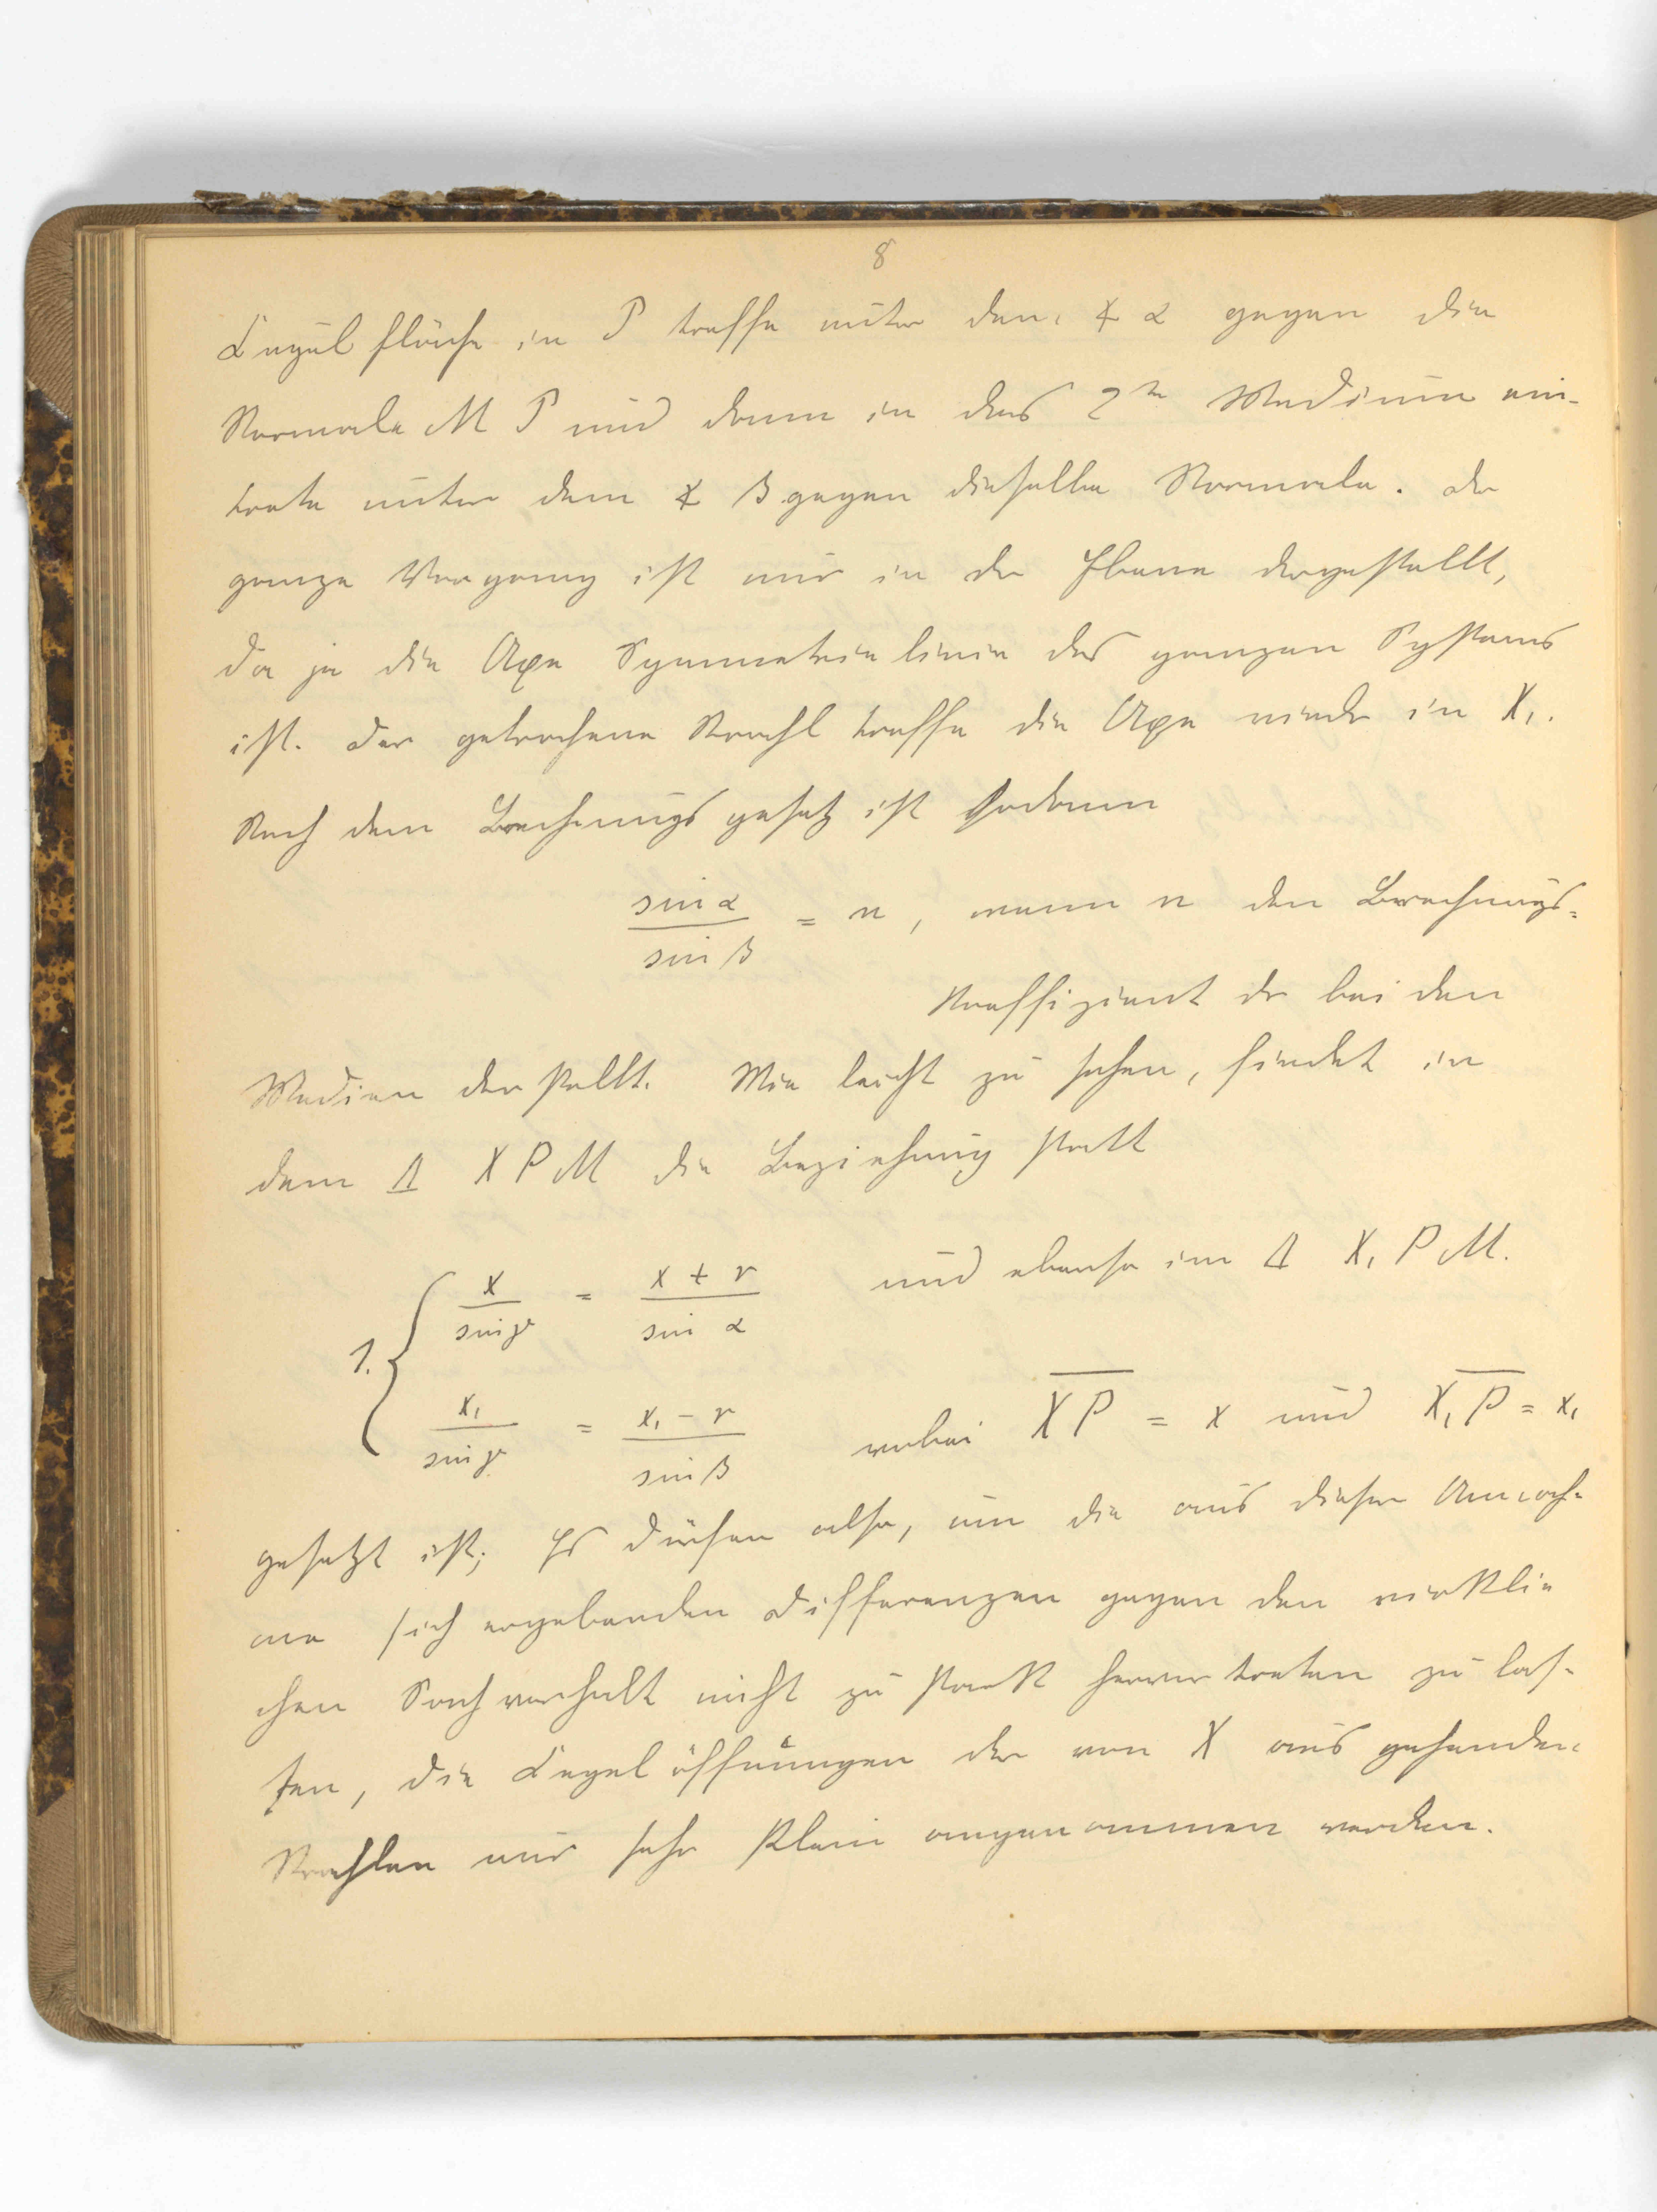 8
Kugelfläche in P treffe unter dem ∢ α gegen die
Normale M P und dann in das 2te Medium ein-
trete unter dem ∢ β gegen dieselbe Normale. Der
ganze Vorgang ist nur in der Ebene dargestellt,
da ja die Axe Symmetrielinie des ganzen Systems
ist. Der gebrochene Strahl treffe die Axe wieder in X₁.
Nach dem Brechungsgesetz ist sodann
sin α / sin β = n, wenn n den Brechungs-
koeffizient der beiden
Medien darstellt. Wie leicht zu sehen, findet in
dem Δ X P M die Beziehung statt
1. { x / sin γ = x + r / sin α und ebenso im Δ X₁ P M.
x₁ / sin γ = x₁ – r / sin β wobei X̅P̅ = x und X̅₁P̅ = x₁
gesetzt ist; Es dürfen also, um die aus dieser Annah-
me sich ergebenden Differenzen gegen den wirkli-
chen Sachverhalt nicht zu stark hervortreten zu las-
sen, die Kegelöffnungen der von X aus gesanden
Strahlen nur sehr klein angenommen werden.